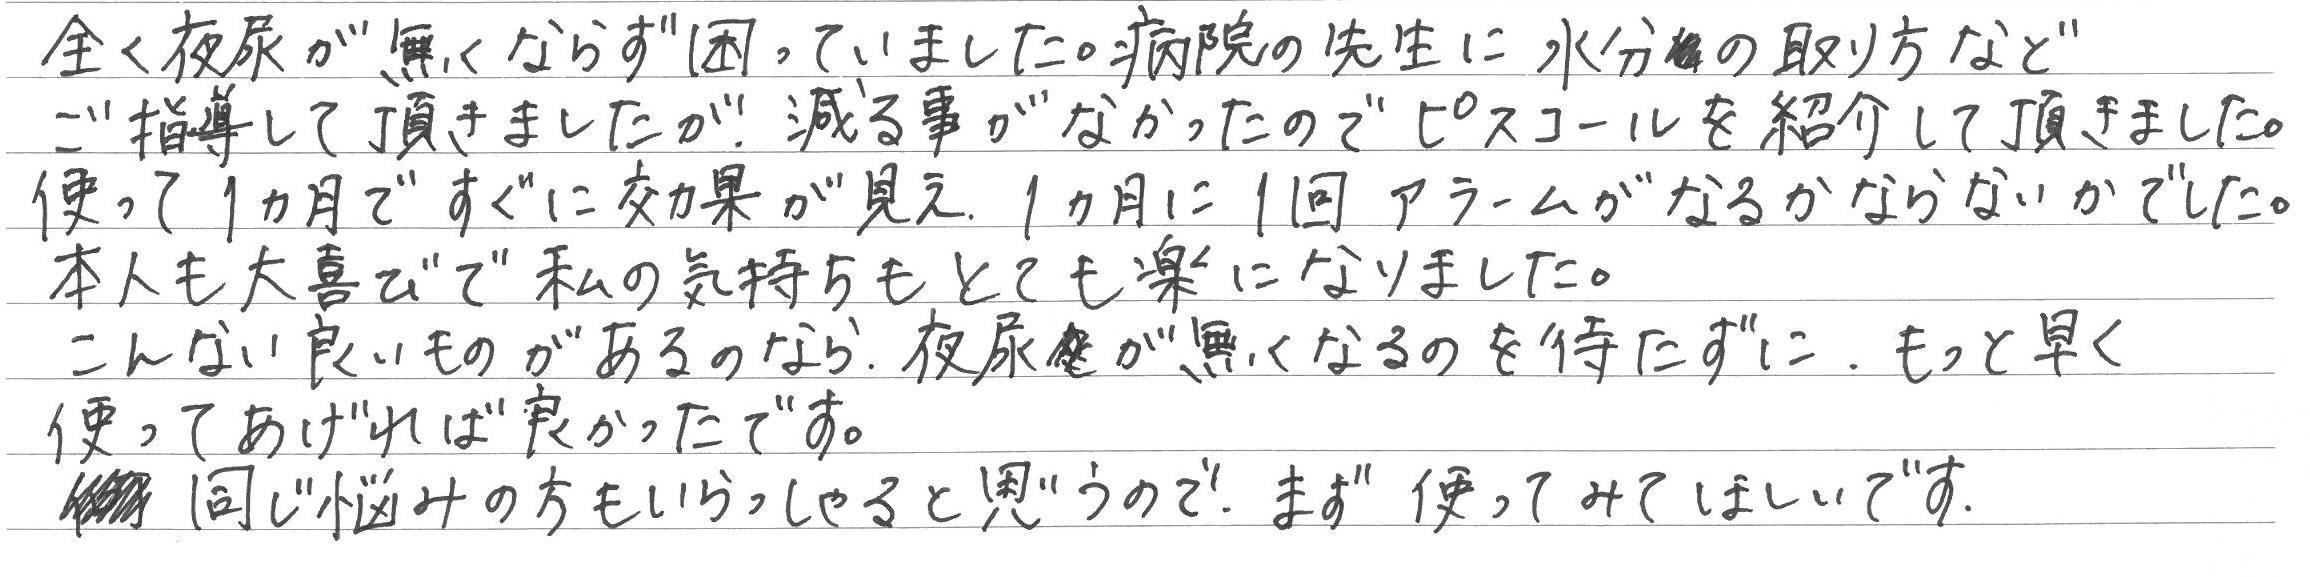 全く夜尿が無くならず困っていました。病院の先生に水分の取り方など
ご指導して頂きましたが、減る事がなかったのでピスコールを紹介して頂きました。
使って1ヵ月ですぐに効果が見え、1ヵ月に1回アラームがなるかならないかでした。
本人も大喜びで私の気持ちもとても楽になりました。
こんない良いものがあるのなら、夜尿が無くなるのを待たずに、もっと早く
使ってあげれば良かったです。
同じ悩みの方もいらっしゃると思うので、まず使ってみてほしいです.